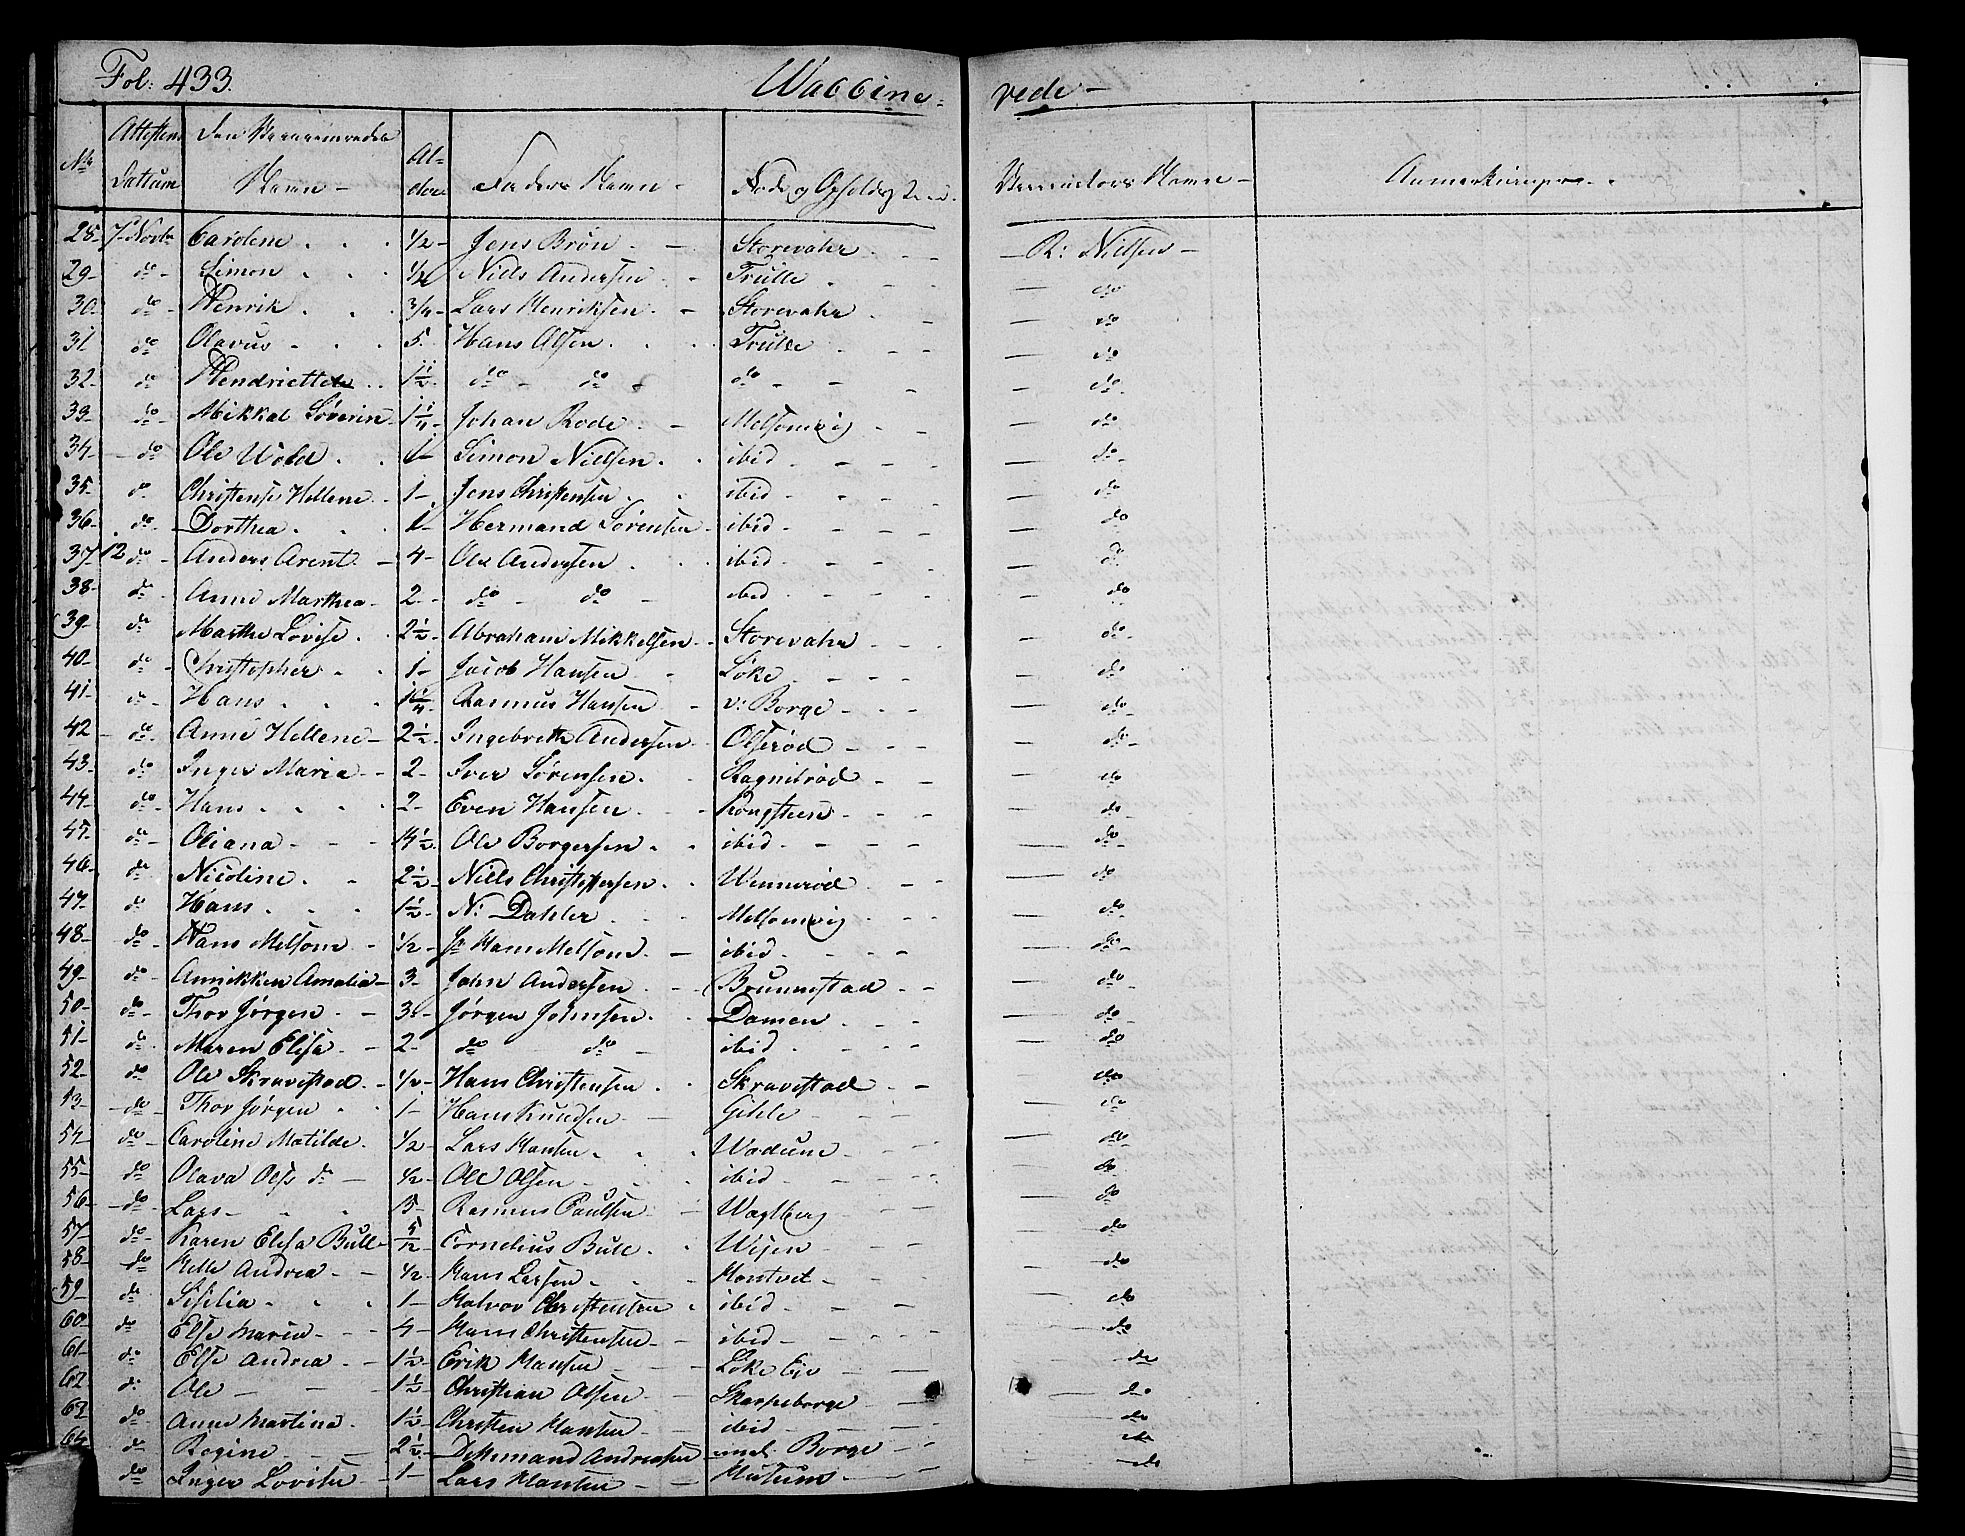 Fol: 433. Waccine= rede-
No Attestens Dattum Den Vaccineredes Navn- Al- der Faders Navn- Føde og Opholds Vaccinators Navn- Anmærkninger.
28- 7 Novbr Carolene 1/2- Jens Brøn- Storevahr - R: Nielsen-
29- do- Simon 1/2 Niels Andersen Trulle do
30- do- Henrik 3/4- Lars Henriksen- Storevahr do
31 do Olavus 5. Hans Olsen Trulle do
32- do Hendriette 1 1/2- do- do do do
33- do- Mikkal Søverin 1 1/4- Johan Rode Melsomvig do
34- do Ole Wold 1- Simon Nielsen ibid do
35- do Christense Hellene 1- Jens Christensen ibid do
36- do- Dorthea 1- Hermand Sørensen ibid do
37 12 do- Anders Arent 4- Ole Andersen ibid do
38- do- Anne Marthea 2- do- do- ibid do
39- do Marthe Lovise 2 1/2- Abraham Mikkelsen Storevahr do
40- do- Christopher 1- Jacob Hansen Løke do
41- do- Hans 1 1/4- Rasmus Hansen v: Borge do
42- do- Anne Hellene- 2 1/2- Ingebreth Andersen Olserød do-
43- do Inger Maria- 2- Iver Sørensen do
44- do- Hans 2- Even Hansen do
45- do- Oliana 4 1/2- Ole Borgersen ibid do
46- do- Nicoline 2 1/2- Niels Christophersen Wennerød do
47- do Hans 1 1/2- N: Dahler Melsomvig do
48- do- Hans Melsom 1/2- Hans Melsom ibid do-
49- do- Annikken Amalia- 3- John Andersen Brunnestad do-
50- do- Thor Jørgen 3. Jørgen Johnsen Damen do
51- do Maren Elisa 2- do do ibid do
52- do Ole Skravestad 1/2- Hans Christensen Skravestad do
53- do- Thor Jørgen 1- Hans Knudsen do
54- do- Caroline Matilde 1/2- Lars Hansen Wadum do
55- do Olava 1/2- Ole Olsen ibid do
56- do- Lars- 5- Rasmus Paulsen do
57- do- Karen Elisa Bull- 5/12- Cornelius Bull do
58- do Andrea 1/2- Hans Larsen Hontvet do
59- do Sisilia 1- Halvor Christensen ibid do
60- do Else Maria- 4- Hans Christensen ibid- do
61- do Else Andrea 1 1/2- Erik Hansen Løke Eie do
62- do Ole 1 1/2- Christian Olsen do
63- do Anne Martina 1 1/2- Christen Hansen ibid do
64- do Regine 2 1/2- Andreasen Borge do
do Inger Lovise 1- Lars Hansen do